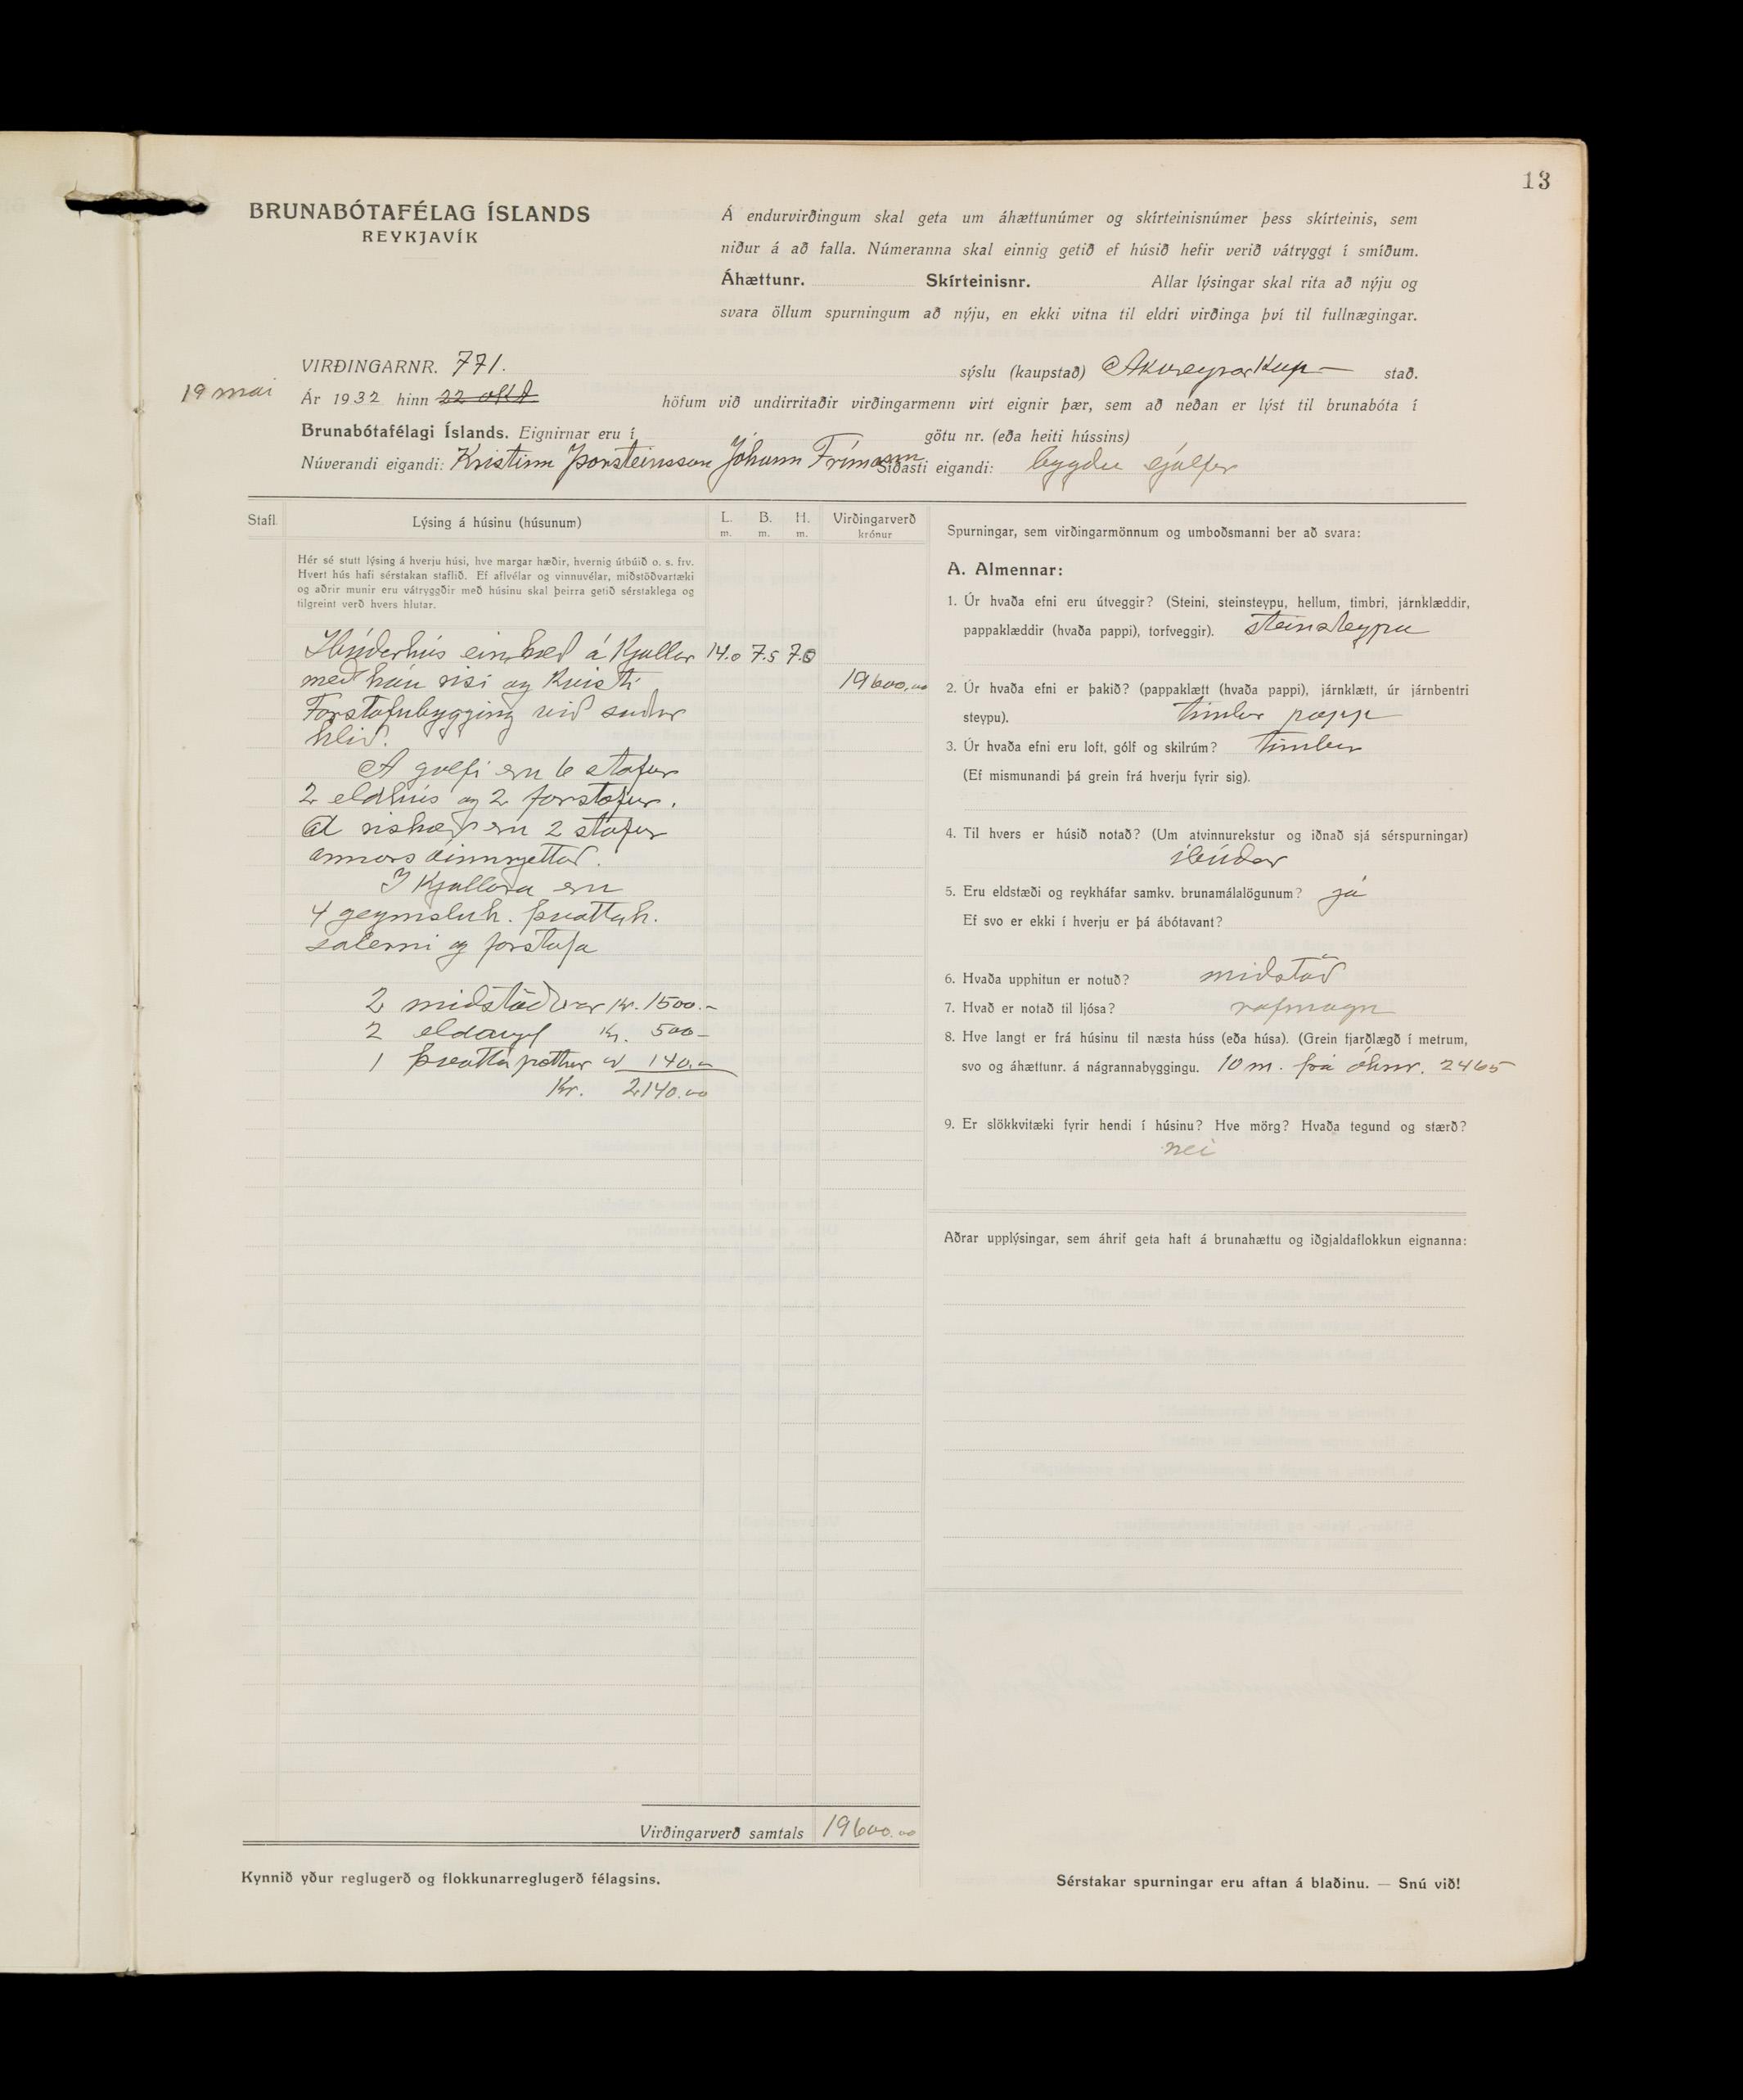 13
BRUNABÓTAFÉLAG ÍSLANDS
REYKJAVÍK
Á endurvirðingum skal geta um áhættunúmer og skírteinisnúmer þess skírteinis, sem
niður á að falla. Númeranna skal einnig getið ef húsið hefir verið vátryggt í smíðum.
Áhættunr. Skírteinisnr. Allar lýsingar skal rita að nýju og
svara öllum spurningum að nýju, en ekki vitna til eldri virðinga því til fullnægingar.
VIRÐINGARNR. 771. sýslu (kaupstað) Akureyrarkaup- stað.
19 mai
Ár 1932 hinn 22 okt höfum við undirritaðir virðingarmenn virt eignir þær, sem að neðan er lýst til brunabóta í
Brunabótafélagi Íslands. Eignirnar eru í götu nr. (eða heiti hússins)
Núverandi eigandi: Kristinn Þorsteinsson Jóhann Frímann Síðasti eigandi: bygdu sjálfir
Stafl. Lýsing á húsinu (húsunum) L. m. B. m. H. m. Virðingarverð krónur
Hér sé stutt lýsing á hverju húsi, hve margar hæðir, hvernig útbúið o. s. frv.
Hvert hús hafi sérstakan staflið. Ef aflvélar og vinnuvélar, miðstöðvartæki
og aðrir munir eru vátryggðir með húsinu skal þeirra getið sérstaklega og
tilgreint verð hvers hlutar.
Íbúðarhús einhæð á kjallar 14.0 7.5 7.0
með háu risi og kvisti 19600.00
Forstofubygging við suður
hlið.
Á gólfi eru 6 stofur
2 eldhús og 2 forstofur.
Á rishæð eru 2 stofur
annars óinnrjettað.
Í kjallara eru
4 geymsluh. þvottah.
salerni og forstofa
2 miðstöðvar kr. 1500.-
2 eldavjel kr. 500-
1 þvottapottur 140.-
Kr. 2140.00
Virðingarverð samtals 19600.00
Kynnið yður reglugerð og flokkunarreglugerð félagsins.
Spurningar, sem virðingarmönnum og umboðsmanni ber að svara:
A. Almennar:
1. Úr hvaða efni eru útveggir? (Steini, steinsteypu, hellum, timbri, járnklæddir,
pappaklæddir (hvaða pappi), torfveggir). steinsteypu
2. Úr hvaða efni er þakið? (pappaklætt (hvaða pappi), járnklætt, úr járnbentri
steypu). timbur papp
3. Úr hvaða efni eru loft, gólf og skilrúm? timbur
(Ef mismunandi þá grein frá hverju fyrir sig).
4. Til hvers er húsið notað? (Um atvinnurekstur og iðnað sjá sérspurningar)
íbúðar
5. Eru eldstæði og reykháfar samkv. brunamálalögunum? já
Ef svo er ekki í hverju er þá ábótavant?
6. Hvaða upphitun er notuð? miðstöð
7. Hvað er notað til ljósa? rafmagn
8. Hve langt er frá húsinu til næsta húss (eða húsa). (Grein fjarðlægð í metrum,
svo og áhættunr. á nágrannabyggingu. 10 m. frá áhnr. 2465
9. Er slökkvitæki fyrir hendi í húsinu? Hve mörg? Hvaða tegund og stærð?
nei
Aðrar upplýsingar, sem áhrif geta haft á brunahættu og iðgjaldaflokkun eignanna:
Sérstakar spurningar eru aftan á blaðinu. — Snú við!